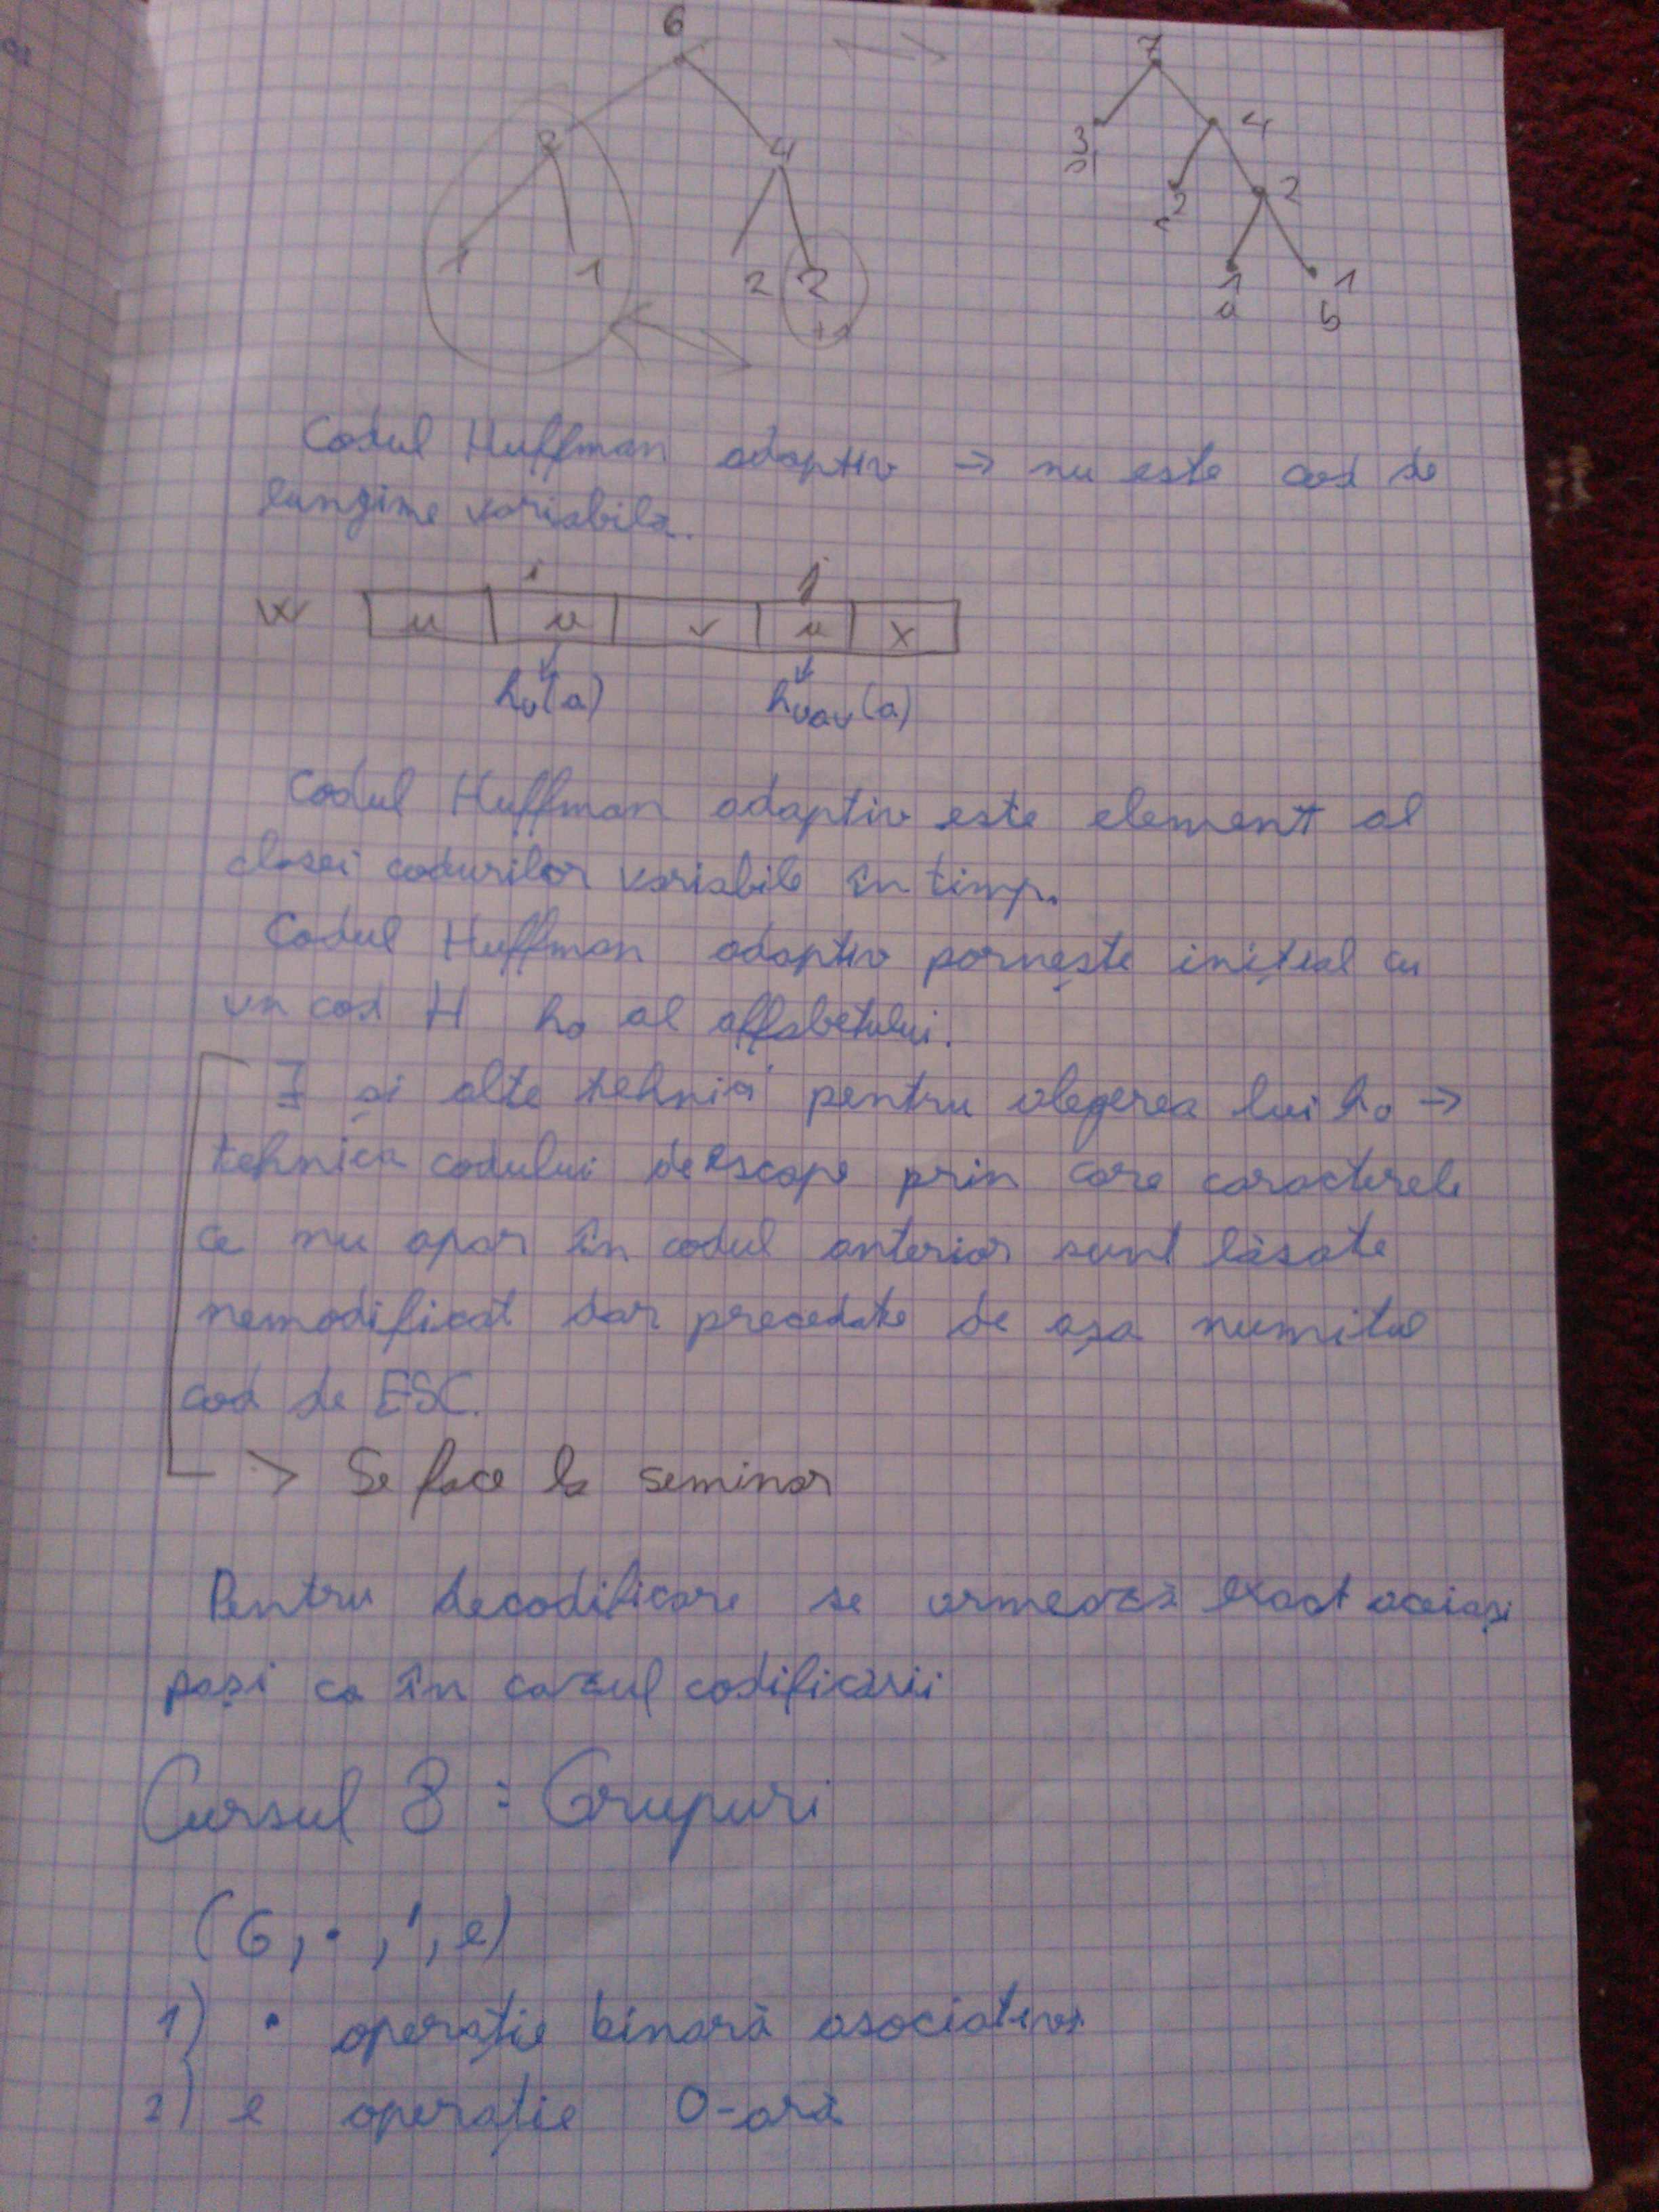 6
7
2 4
3 4
d 2 2
c
1 1 2 2
1 1
+1
a b
Codul Huffman adaptiv → nu este cod de
lungime variabilă.
i j
w u a v a x
hu(a) huav(a)
Codul Huffman adaptiv este element al
clasei codurilor variabile în timp.
Codul Huffman adaptiv pornește inițial cu
un cod H h0 al alfabetului.
∃ și alte tehnici pentru alegerea lui h0 →
tehnica codului de escape prin care caracterele
ce nu apar în codul anterior sunt lăsate
nemodificat dar precedate de așa numitul
cod de ESC.
→ Se face la seminar
Pentru decodificare se urmează exact aceiași
pași ca în cazul codificării
Cursul 8 : Grupuri
(G, ·, ', e)
1) · operație binară asociativă
2) e operație 0-ară